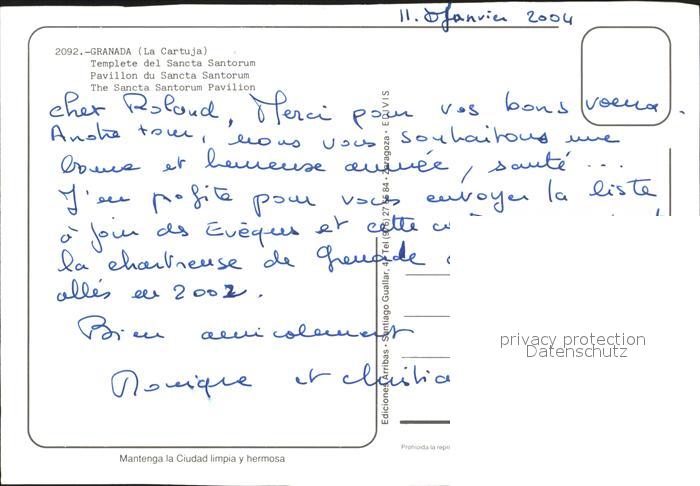 11. Janvier 2004
2092.-GRANADA (La Cartuja)
Templete del Sancta Santorum
Pavillon du Sancta Santorum
The Sancta Santorum Pavilion
cher Roland, Merci pour vos bons voeux.
A notre tour, nous vous souhaitons une
bonne et heureuse année, santé ...
J'en profite pour vous envoyer la liste
à jour des Evêques et cette
la chartreuse de Grenade
allés en 2002.
Bien amicalement
Monique et Christia
Ediciones Arribas - Santiago Guallar, 4 - Tel (976) 27 56 84 - Zaragoza - EDUVIS
privacy protection
Datenschutz
Prohibida la repr
Mantenga la Ciudad limpia y hermosa